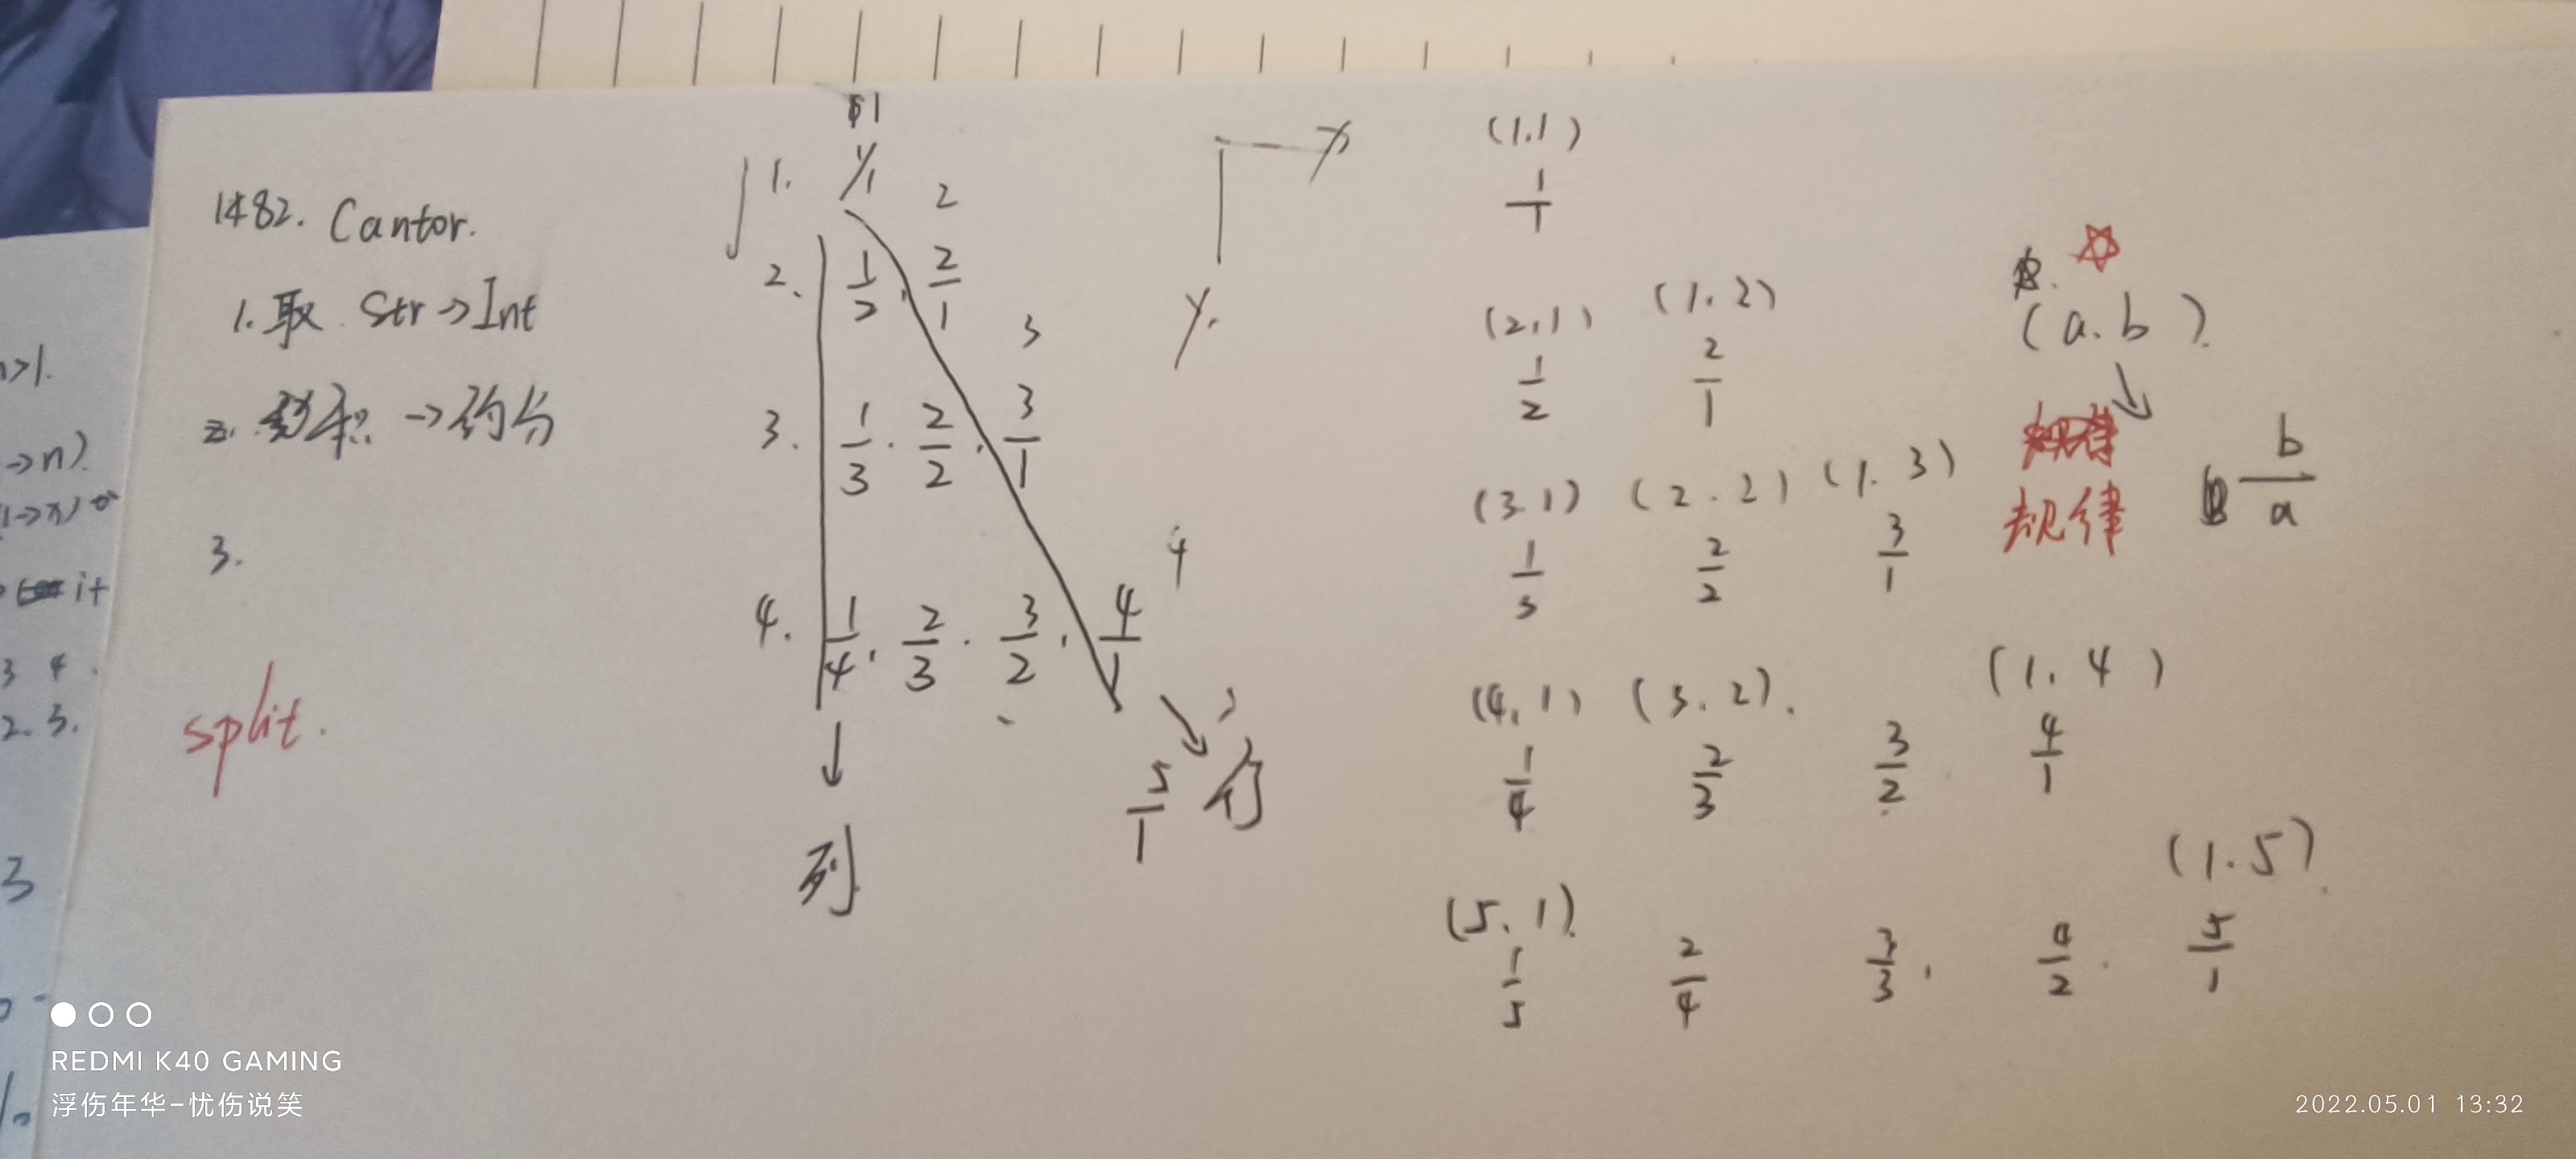 1482. Cantor.
1. 取 Str→Int
2. 约积 → 约分
3.
split.
1
1. 1/1
2
2. 1/2, 2/1
3
3. 1/3 . 2/2 . 3/1
4
4. 1/4, 2/3 . 3/2 , 4/1
5/1
列
行
x
y.
(1.1)
1/1
(2,1) (1.2)
1/2 2/1
(3.1) (2.2) (1.3)
1/3 2/2 3/1
(4,1) (3.2). (1.4)
1/4 2/3 3/2 4/1
(5.1). (1.5).
1/5 2/4 3/3, 4/2. 5/1
(a.b).
规律
b/a
n>1.
→n).
it
3 4.
2. 3.
3
REDMI K40 GAMING
浮伤年华-忧伤说笑
2022.05.01 13:32